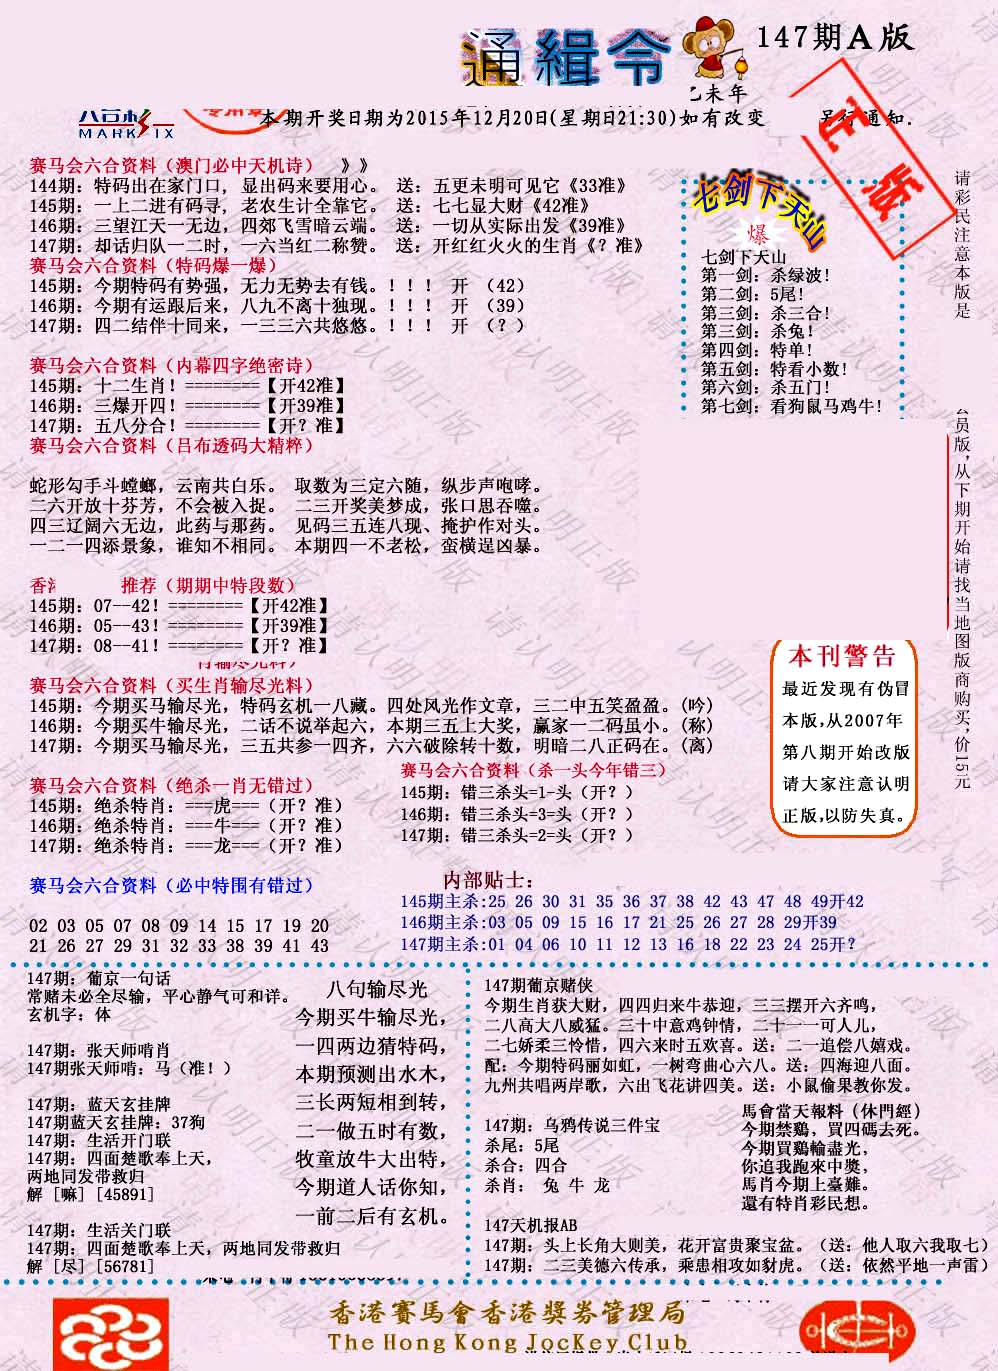 通緝令
147期A版
乙未年
六合彩
MARK SIX
本期开奖日期为2015年12月20日(星期日21:30)如有改变 另行通知.
赛马会六合资料（澳门必中天机诗） 》》
144期：特码出在家门口，显出码来要用心。 送：五更未明可见它《33准》
145期：一上二进有码寻，老农生计全靠它。 送：七七显大财《42准》
146期：三望江天一无边，四郊飞雪暗云端。 送：一切从实际出发《39准》
147期：却话归队一二时，一六当红二称赞。 送：开红红火火的生肖《？准》
赛马会六合资料（特码爆一爆）
145期：今期特码有势强，无力无势去有钱。！！！ 开 （42）
146期：今期有运跟后来，八九不离十独现。！！！ 开 （39）
147期：四二结伴十同来，一三三六共悠悠。！！！ 开 （？）
赛马会六合资料（内幕四字绝密诗）
145期：十二生肖！========【开42准】
146期：三爆开四！========【开39准】
147期：五八分合！========【开？准】
赛马会六合资料（吕布透码大精粹）
蛇形勾手斗螳螂，云南共白乐。 取数为三定六随，纵步声咆哮。
二六开放十芬芳，不会被入捉。 二三开奖美梦成，张口思吞噬。
四三辽阔六无边，此药与那药。 见码三五连八现、掩护作对头。
一二一四添景象，谁知不相同。 本期四一不老松，蛮横逞凶暴。
七剑下天山
爆
七剑下天山
第一剑：杀绿波！
第二剑：5尾！
第三剑：杀三合！
第三剑：杀兔！
第四剑：特单！
第五剑：特看小数！
第六剑：杀五门！
第七剑：看狗鼠马鸡牛！
请彩民注意本版是
会员版，从下期开始请找当地图版商购买，价15元
推荐（期期中特段数）
145期：07--42！========【开42准】
146期：05--43！========【开39准】
147期：08--41！========【开？准】
赛马会六合资料（买生肖输尽光料）
145期：今期买马输尽光，特码玄机一八藏。四处风光作文章，三二中五笑盈盈。(吟)
146期：今期买牛输尽光，二话不说举起六，本期三五上大奖，赢家一二码虽小。(称)
147期：今期买马输尽光，三五共参一四齐，六六破除转十数，明暗二八正码在。(离)
本刊警告
最近发现有伪冒
本版,从2007年
第八期开始改版
请大家注意认明
正版,以防失真。
赛马会六合资料（绝杀一肖无错过）
145期：绝杀特肖：===虎===（开？准）
146期：绝杀特肖：===牛===（开？准）
147期：绝杀特肖：===龙===（开？准）
赛马会六合资料（杀一头今年错三）
145期：错三杀头=1-头（开？）
146期：错三杀头=3=头（开？）
147期：错三杀头=2=头（开？）
赛马会六合资料（必中特围有错过）
02 03 05 07 08 09 14 15 17 19 20
21 26 27 29 31 32 33 38 39 41 43
内部贴士：
145期主杀:25 26 30 31 35 36 37 38 42 43 47 48 49开42
146期主杀:03 05 09 15 16 17 21 25 26 27 28 29开39
147期主杀:01 04 06 10 11 12 13 16 18 22 23 24 25开？
147期：葡京一句话
常赌未必全尽输，平心静气可和详。
玄机字：体
147期：张天师啃肖
147期张天师啃：马（准！）
147期：蓝天玄挂牌
147期蓝天玄挂牌：37狗
147期：生活开门联
147期：四面楚歌奉上天，
两地同发带救归
解 [嘛] [45891]
147期：生活关门联
147期：四面楚歌奉上天，两地同发带救归
解 [尽] [56781]
八句输尽光
今期买牛输尽光，
一四两边猜特码，
本期预测出水木，
三长两短相到转，
二一做五时有数，
牧童放牛大出特，
今期道人话你知，
一前二后有玄机。
147期葡京赌侠
今期生肖获大财，四四归来牛恭迎，三三摆开六齐鸣，
二八高大八威猛。三十中意鸡钟情，二十一一可人儿，
二七娇柔三怜惜，四六来时五欢喜。送：二一追偿八嬉戏。
配：今期特码丽如虹，一树弯曲心六八。送：四海迎八面。
九州共唱两岸歌，六出飞花讲四美。送：小鼠偷果教你发。
147期：乌鸦传说三件宝
杀尾：5尾
杀合：四合
杀肖： 兔 牛 龙
馬會當天報料（休門經）
今期禁鷄，買四碼去死。
今期買鷄輸盡光，
你追我跑來中獎，
馬肖今期上臺難。
還有特肖彩民想。
147天机报AB
147期：头上长角大则美，花开富贵聚宝盆。（送：他人取六我取七）
147期：二三美德六传承，乘患相攻如豺虎。（送：依然平地一声雷）
香港賽馬會香港獎券管理局
The Hong Kong JocKey Club